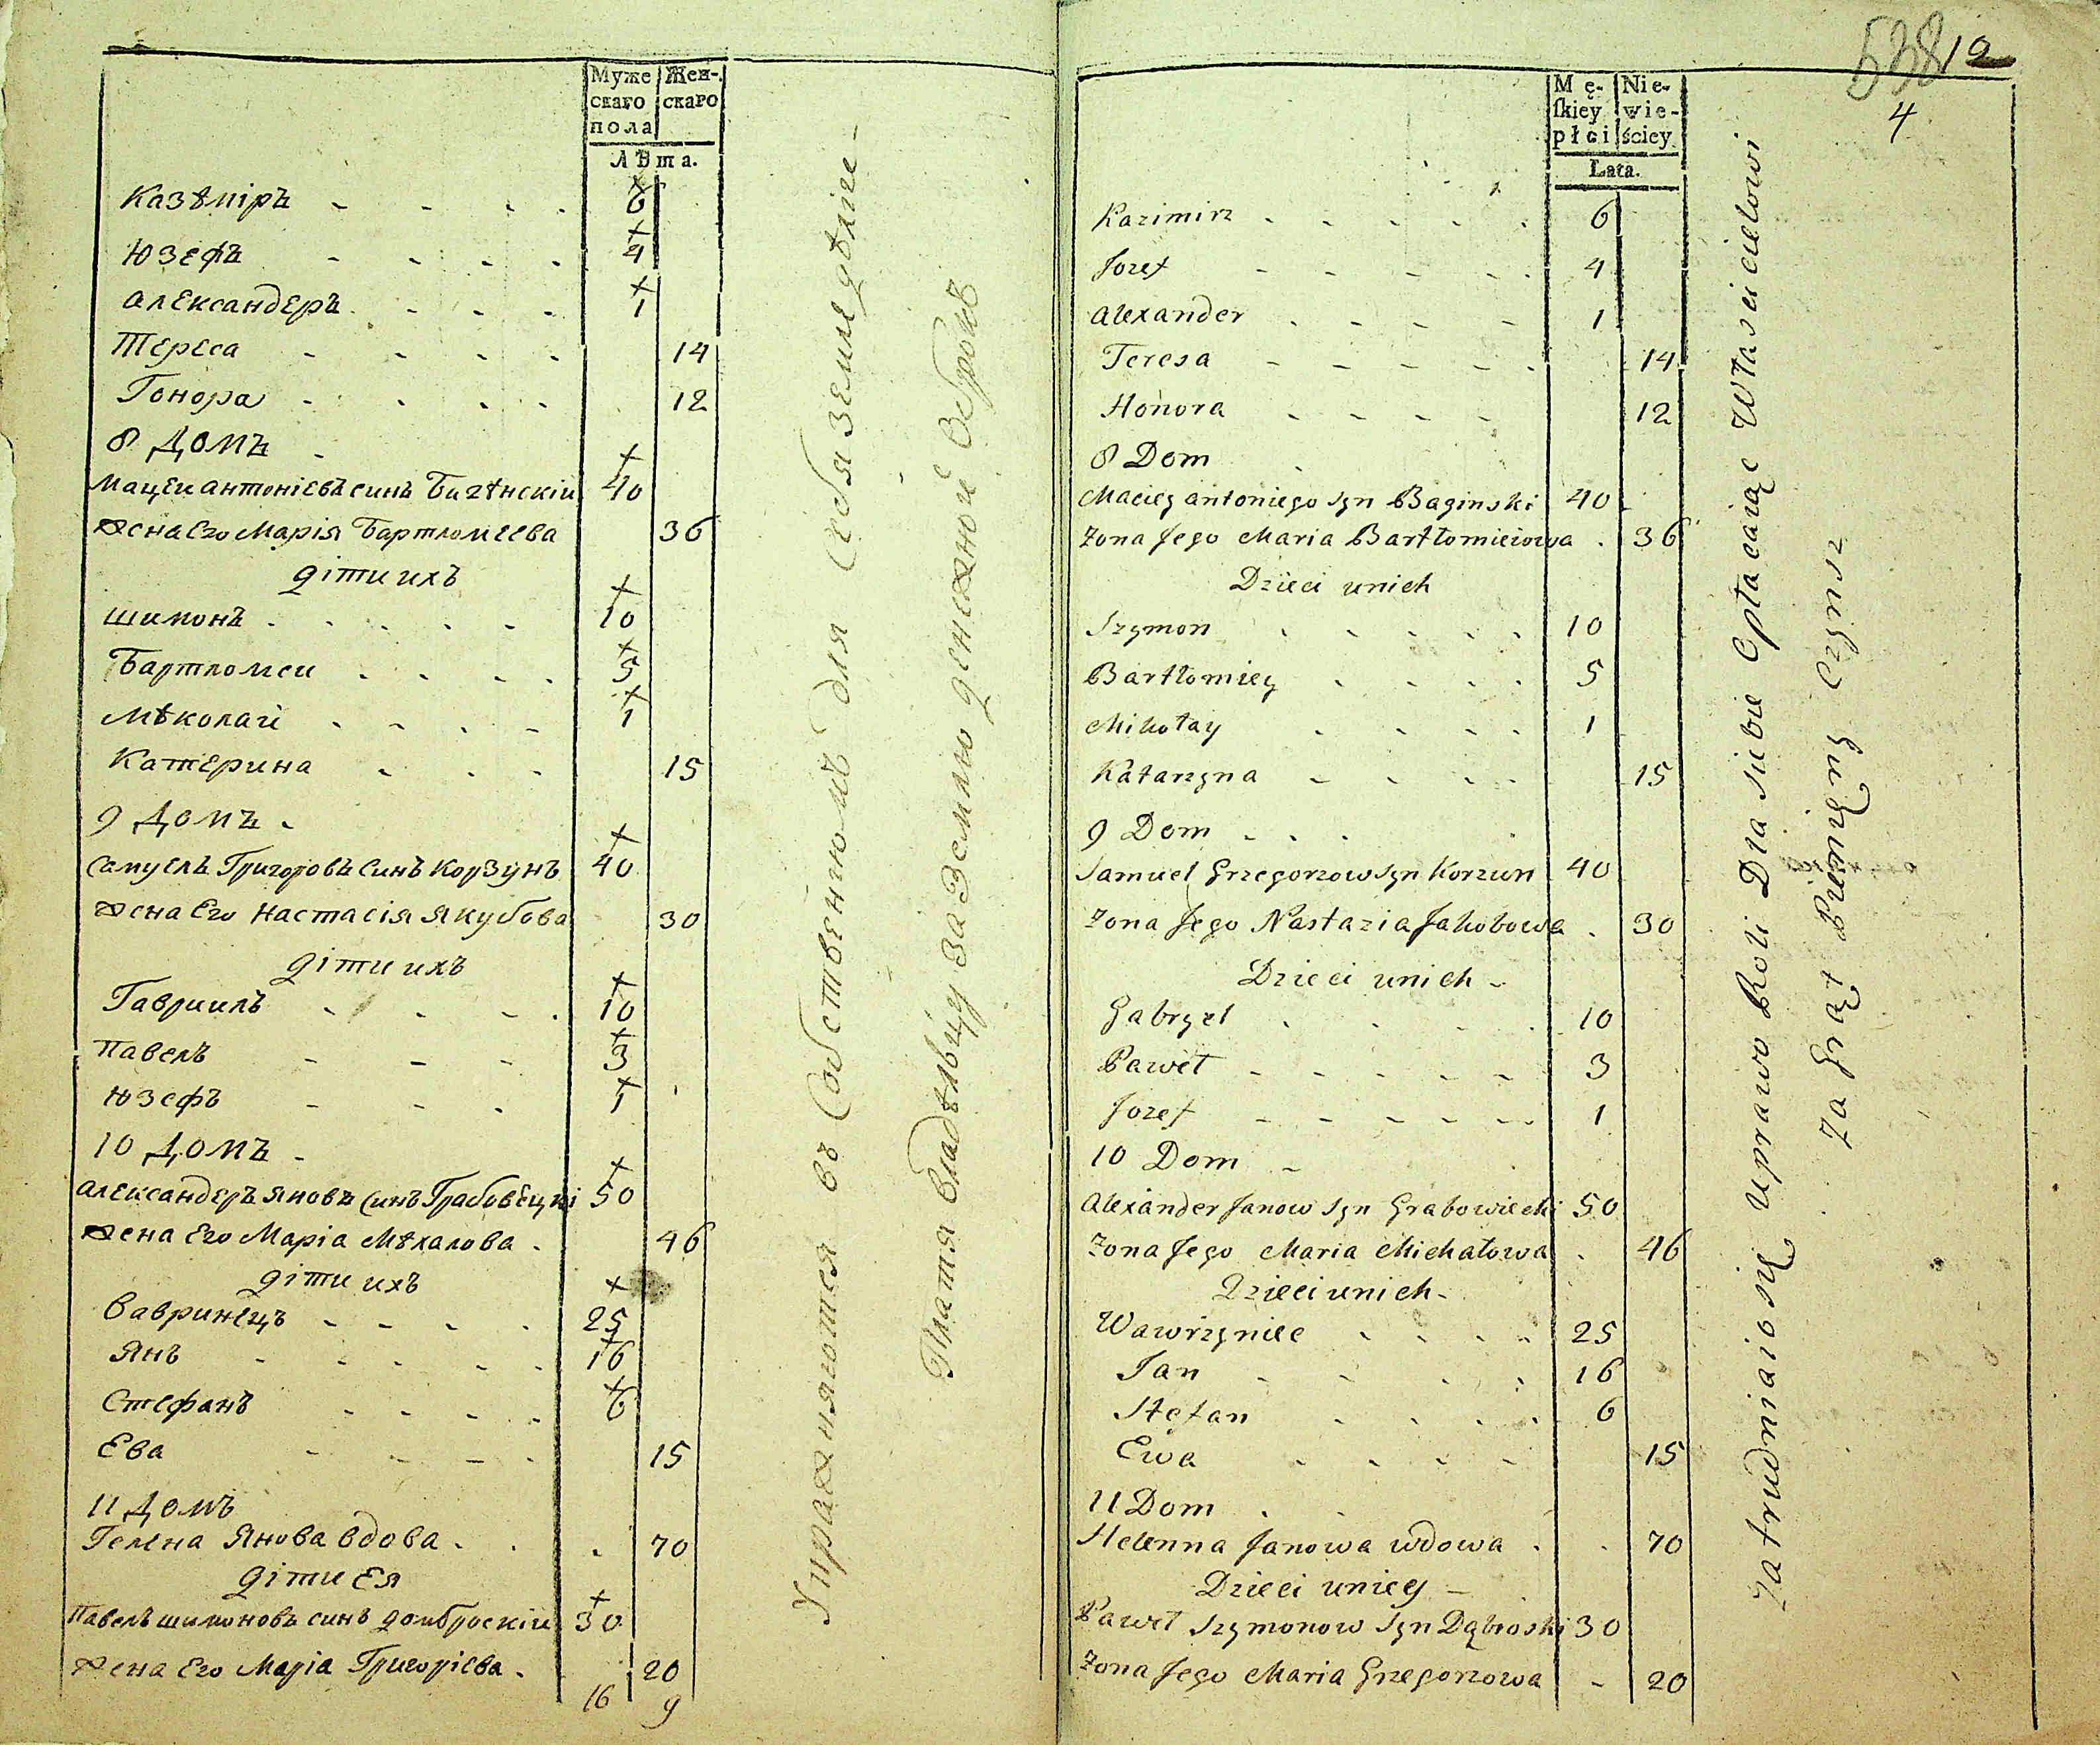 Муже Жен-
скаго скаго
пола
Лѣта.
Казѣміръ - - - - 6
Юзефъ - - - - 4
Александеръ - - - - 1
Тереса - - - - 14
Гонора - - - - 12
8 Домъ -
Мацеи Антоніевъ синъ Багѣнскіи 40
жена Его Марія Бартломеева 36
діти ихъ
Шимонъ - - - - 10
Бартломеи - - - - 5
Мѣколаи - - - - 1
Катерина - - - 15
9 Домъ -
Самуелъ Григоровъ Синъ Корзунъ 40
жена Его Настасія Якубова 30
діти ихъ
Гавриилъ - - - - 10
Павелъ - - - 3
Юзефъ - - - 1
10 Домъ -
Александеръ Яновъ Синъ Грабовецкі 50
жена Его Маріа Мѣхалова - 46
діти ихъ
Вавринецъ - - - - 25
Янъ - - - - - 16
Стефанъ - - - - 6
Ева - - - - 15
11 Домъ
Гелена Янова вдова - - - 70
діти Ея
Павелъ Шимоновъ синъ Домброскіи 30
жена Его Маріа Григоріева - 20
16 9
Упражняютса въ Собственномъ для себя Земледѣліе-
Платя Владѣлвцу За Землю денежной Оброкъ
538 12
4
Mę- Nie-
ſkiey wie-
płci ściey
Lata.
Kazimirz - - - - - 6
Jozef - - - - - 4
Alexander - - - - 1
Teresa - - - - - 14
Honora - - - - 12
8 Dom -
Maciey Antoniego Syn Baginski 40
Zona Jego Maria Bartłomieiowa - 36
Dzieci unich
Szymon - - - - - 10
Bartłomiey - - - - 5
Mikołay - - - - 1
Katarzyna - - - - 15
9 Dom - - -
Samuel Grzegorzow Syn Korzun 40
Zona Jego Nastazia Jakobowa - 30
Dzieci unich -
Gabryel - - - - 10
Paweł - - - - - 3
Jozef - - - - - 1
10 Dom -
Alexander Janow Syn Grabowiecki 50
Zona Jego Maria Michałowa - 46
Dzieci unich -
Wawrzyniec - - - - 25
Jan - - - - 16
Stefan - - - - 6
Ewa - - - - 15
11 Dom - -
Helenna Janowa wdowa - - 70
Dzieci uniey -
Paweł Szymonow Syn Dąbroski 30
Zona Jego Maria Grzegorzowa - 20
Zatrudniaio się uprawo Roli Dla siebie Opłacaiąc Właścicielowi
Za Grąt Pieniężny Czynsz